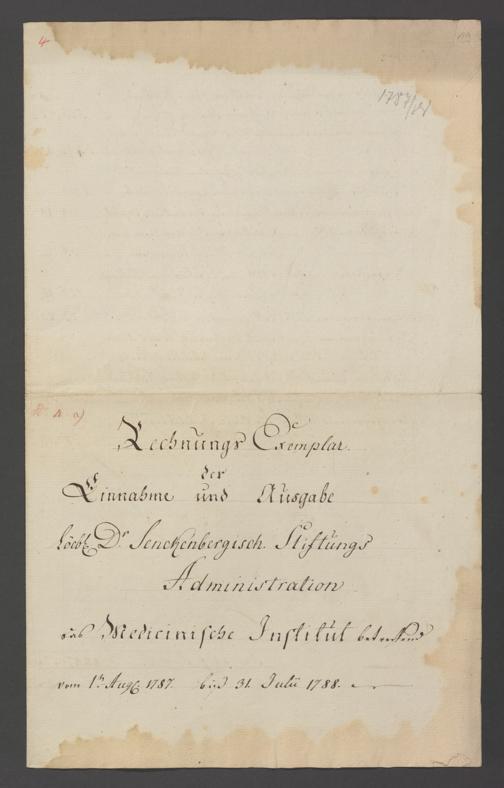 4
1787/88
Rechnungs Exemplar
der
Einnahme und Ausgabe
löebl. Dr. Senckenbergisch. Stiftungs
Administration
das Medicinische Institut betreffend
vom 1tn Aug. 1787. bis 31. Julii 1788.